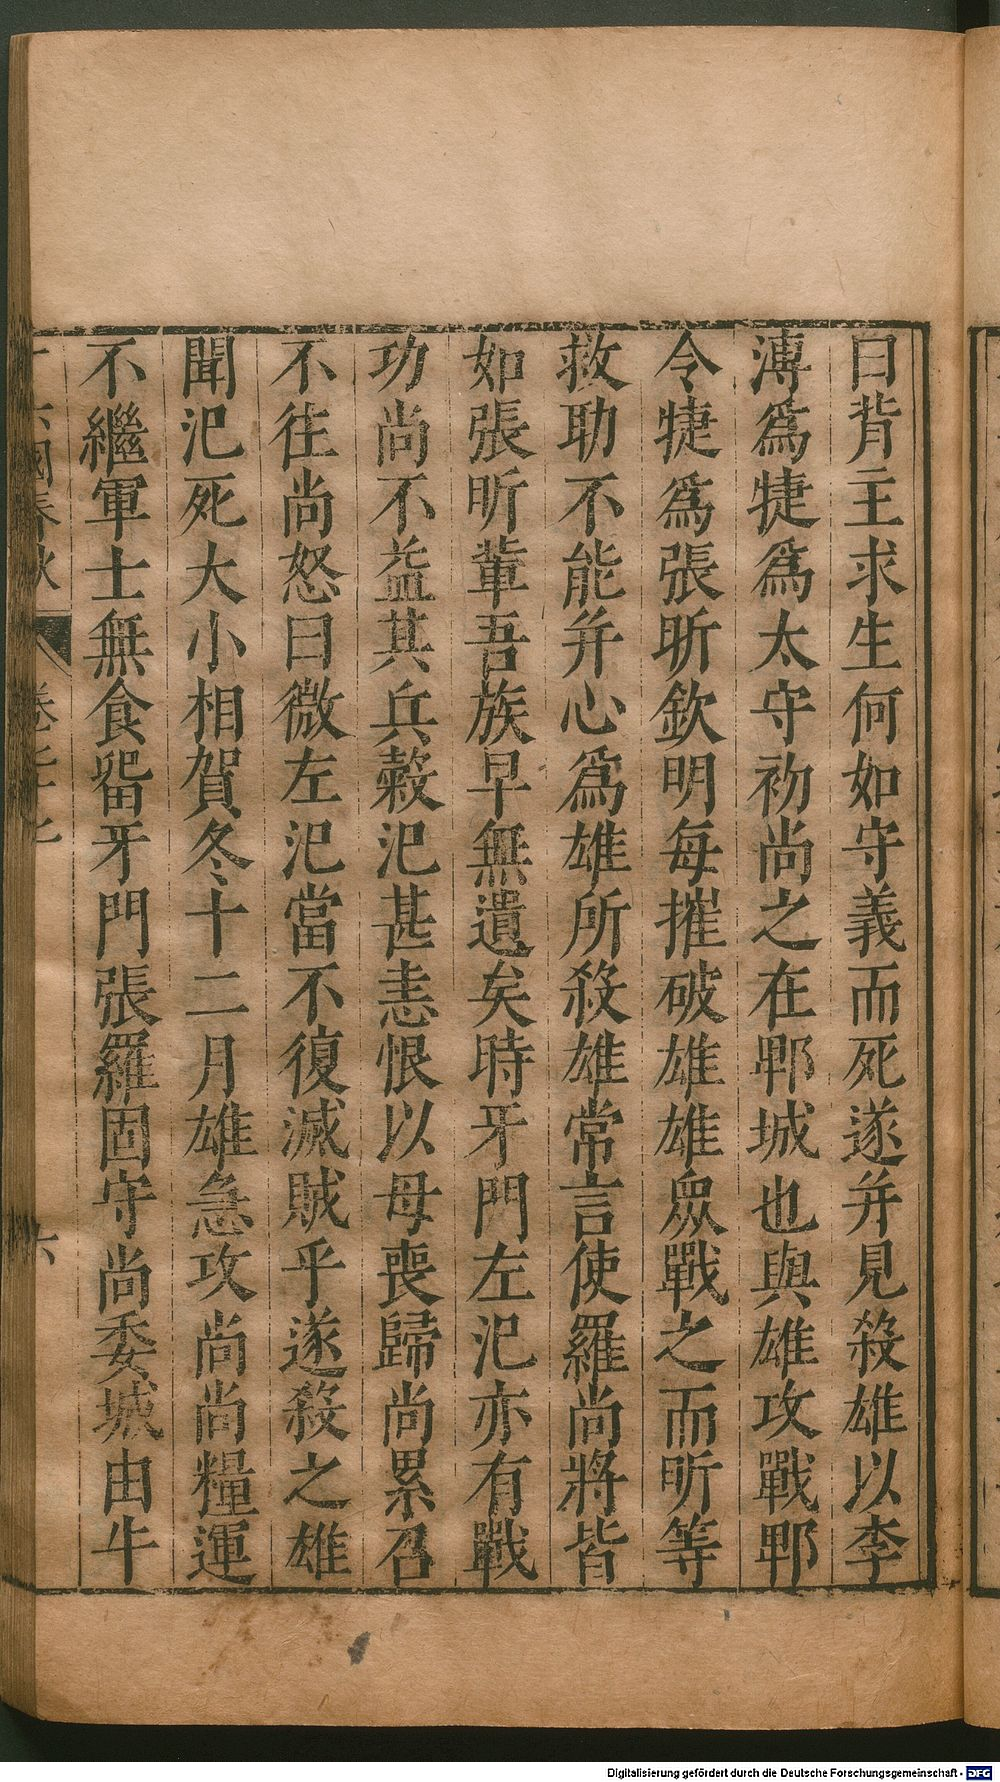 曰背主求生何如守義而死遂并見殺雄以李
溥爲㨗爲太守初尚之在郫城也與雄攻戰郫
令㨗爲張昕欽明每摧破雄雄衆戰之而昕等
救助不能并心爲雄所殺雄常言使羅尚將皆
如張昕軰吾族早無遺矣時牙門左氾亦有戰
功尚不益其兵穀氾甚恚恨以母喪歸尚累召
不往尚怒曰微左氾當不復滅賊乎遂殺之雄
聞氾死大小相賀冬十二月雄急攻尚尚糧運
不繼軍士無食留牙門張羅固守尚委城由牛
六國春秋 卷七十七 六
Digitalisierung gefördert durch die Deutsche Forschungsgemeinschaft - DFG